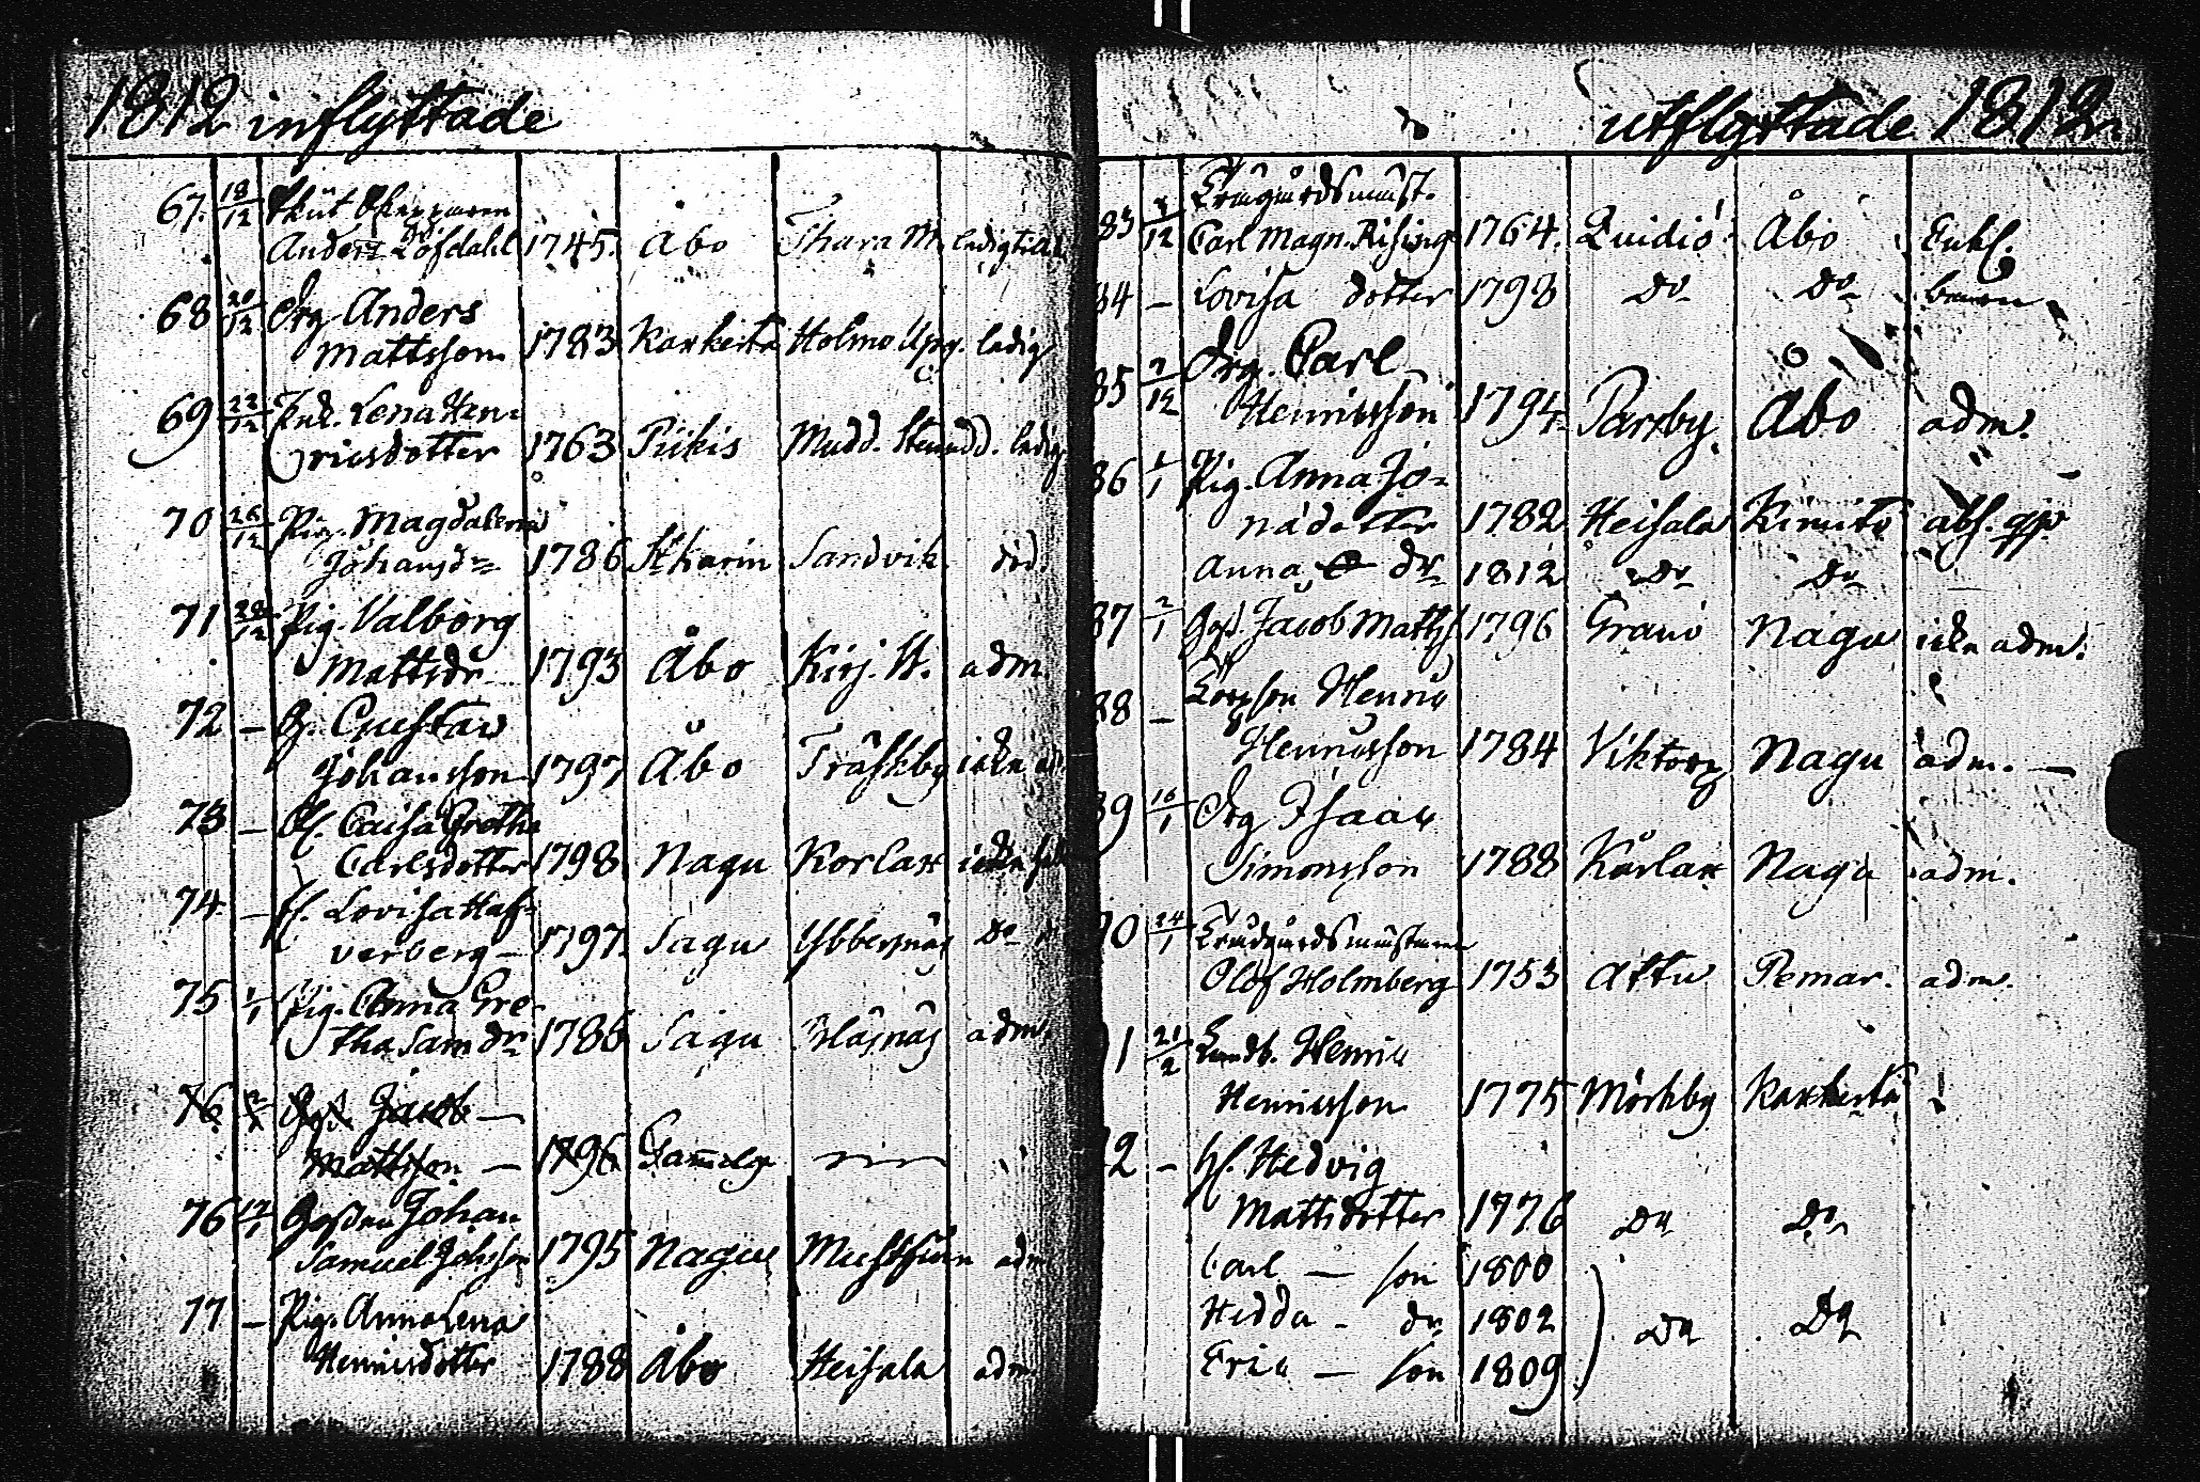 1812 inflyttade
67. 18/12
Anders Löfdahl 1745. Åbo Thara M. ledig
68 20/12 Drg Anders
Mattsson 1783 Karkerta Holmo Uppg. ledig
69 22/12 Enk. Lena Hen-
ricsdotter 1763 Piikis Mudd. ledig
70 26/12 Pig. Magdalena
Johansdr 1786 St Karin Sandvik did.
71 28/12 Pig. Valborg
Mattsdr 1793 Åbo Kirj. St. adm
72 – G. Gustav
Johansson 1797 Åbo Träskby icke
73 – Fl. Caisa Gretha
Carlsdotter 1798 Nagu Korlax icke
74 – Fl. Lovisa Haf-
verberg – 1797. Sagu Ybbersnäs Do
75 1/1 Pig. Anna Gre-
tha Sam dr 1786 Sagu adm.
76 2/1 Goss. Jacob –
Mattsson – 1796 Gammelg
76 12/1 Gossen Johan
Samuel Johsson 1795 Nagu adm
77 – Pig. Anna Lena
Henricsdotter 1788 Åbo Heisala adm
utflyttade 1812
83 /12 Trägårdsmäst.
Carl Magn. Rising 1764. Qvidiö Åbo Enkl.
84 – Lovisa dotter 1798 Do Do barn
85 2/12 Drg. Carl
Henricsson 1794 Parsby Åbo adm.
86 1/1 Pig. Anna Jo-
nadotter 1782 Heisala Kimito abs. qp
Anna dr 1812 Do Do
87 2/1 Goss. Jacob Matts 1796 Granö Nagu icke adm.
88 – Torpson Henric
Henricsson 1784 Viktorp Nagu adm. –
89 16/1 Drg Isaac
Simonsson 1788 Kårlax Nagu adm.
90 24/1 Trädgårdsmästaren
Olof Holmberg 1753 Attu Pemar. adm.
91 21/2 Landb. Henric
Henricsson 1775 Mörkby Karkerta
92 – H. Hedvig
Mattsdotter 1776 Do Do
Carl – son 1800
Hedda – dr 1802 Do Do
Eric – son 1809